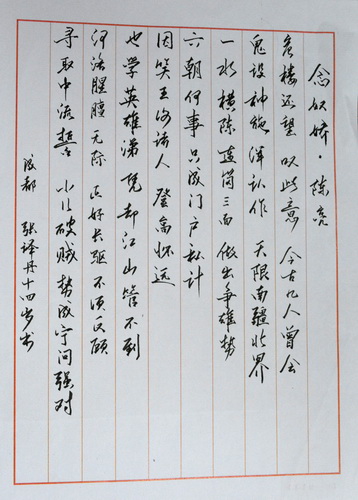 念奴娇·陈亮
危楼还望叹此意今古几人曾会
鬼设神施浑认作天限南疆北界
一水横陈连岗三面做出争雄势
六朝何事只成门户私计
因笑王谢诸人登高怀远
也学英雄涕凭却江山管不到
河洛腥膻无际正好长驱不须反顾
寻取中流誓小儿破贼势成宁问强对
成都 张译丹十四岁书